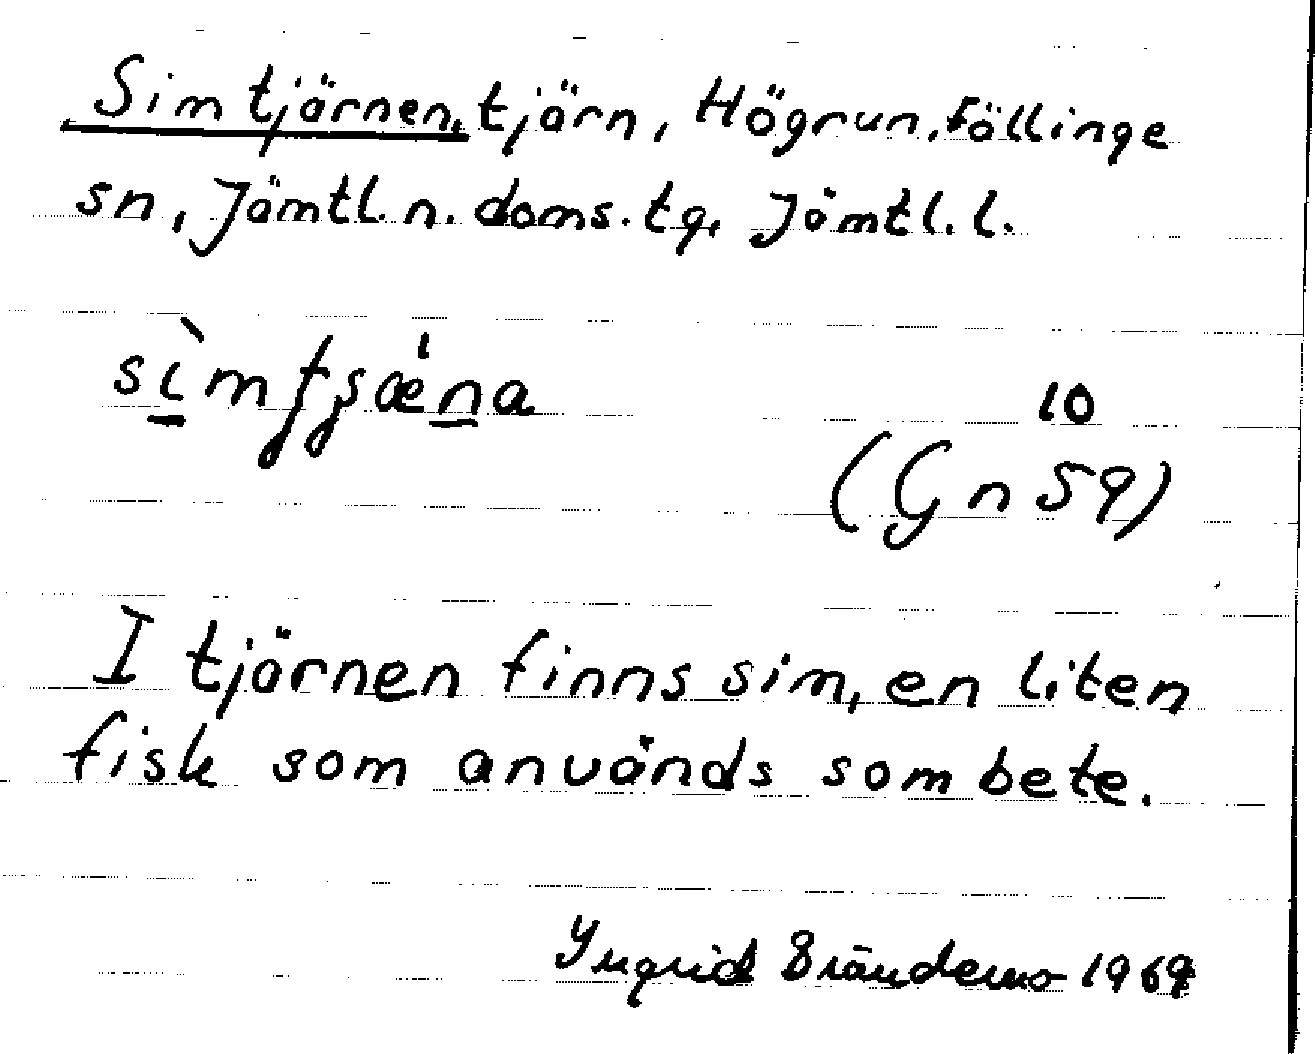 Simtjärnen, tjärn, Högrun, Föllinge
sn, Jämtl. n. doms. tg, Jämtl. l.
10
(Gn 59)
I tjärnen finns sim, en liten
fisk som används som bete.
Yngrid Brändemo 1969